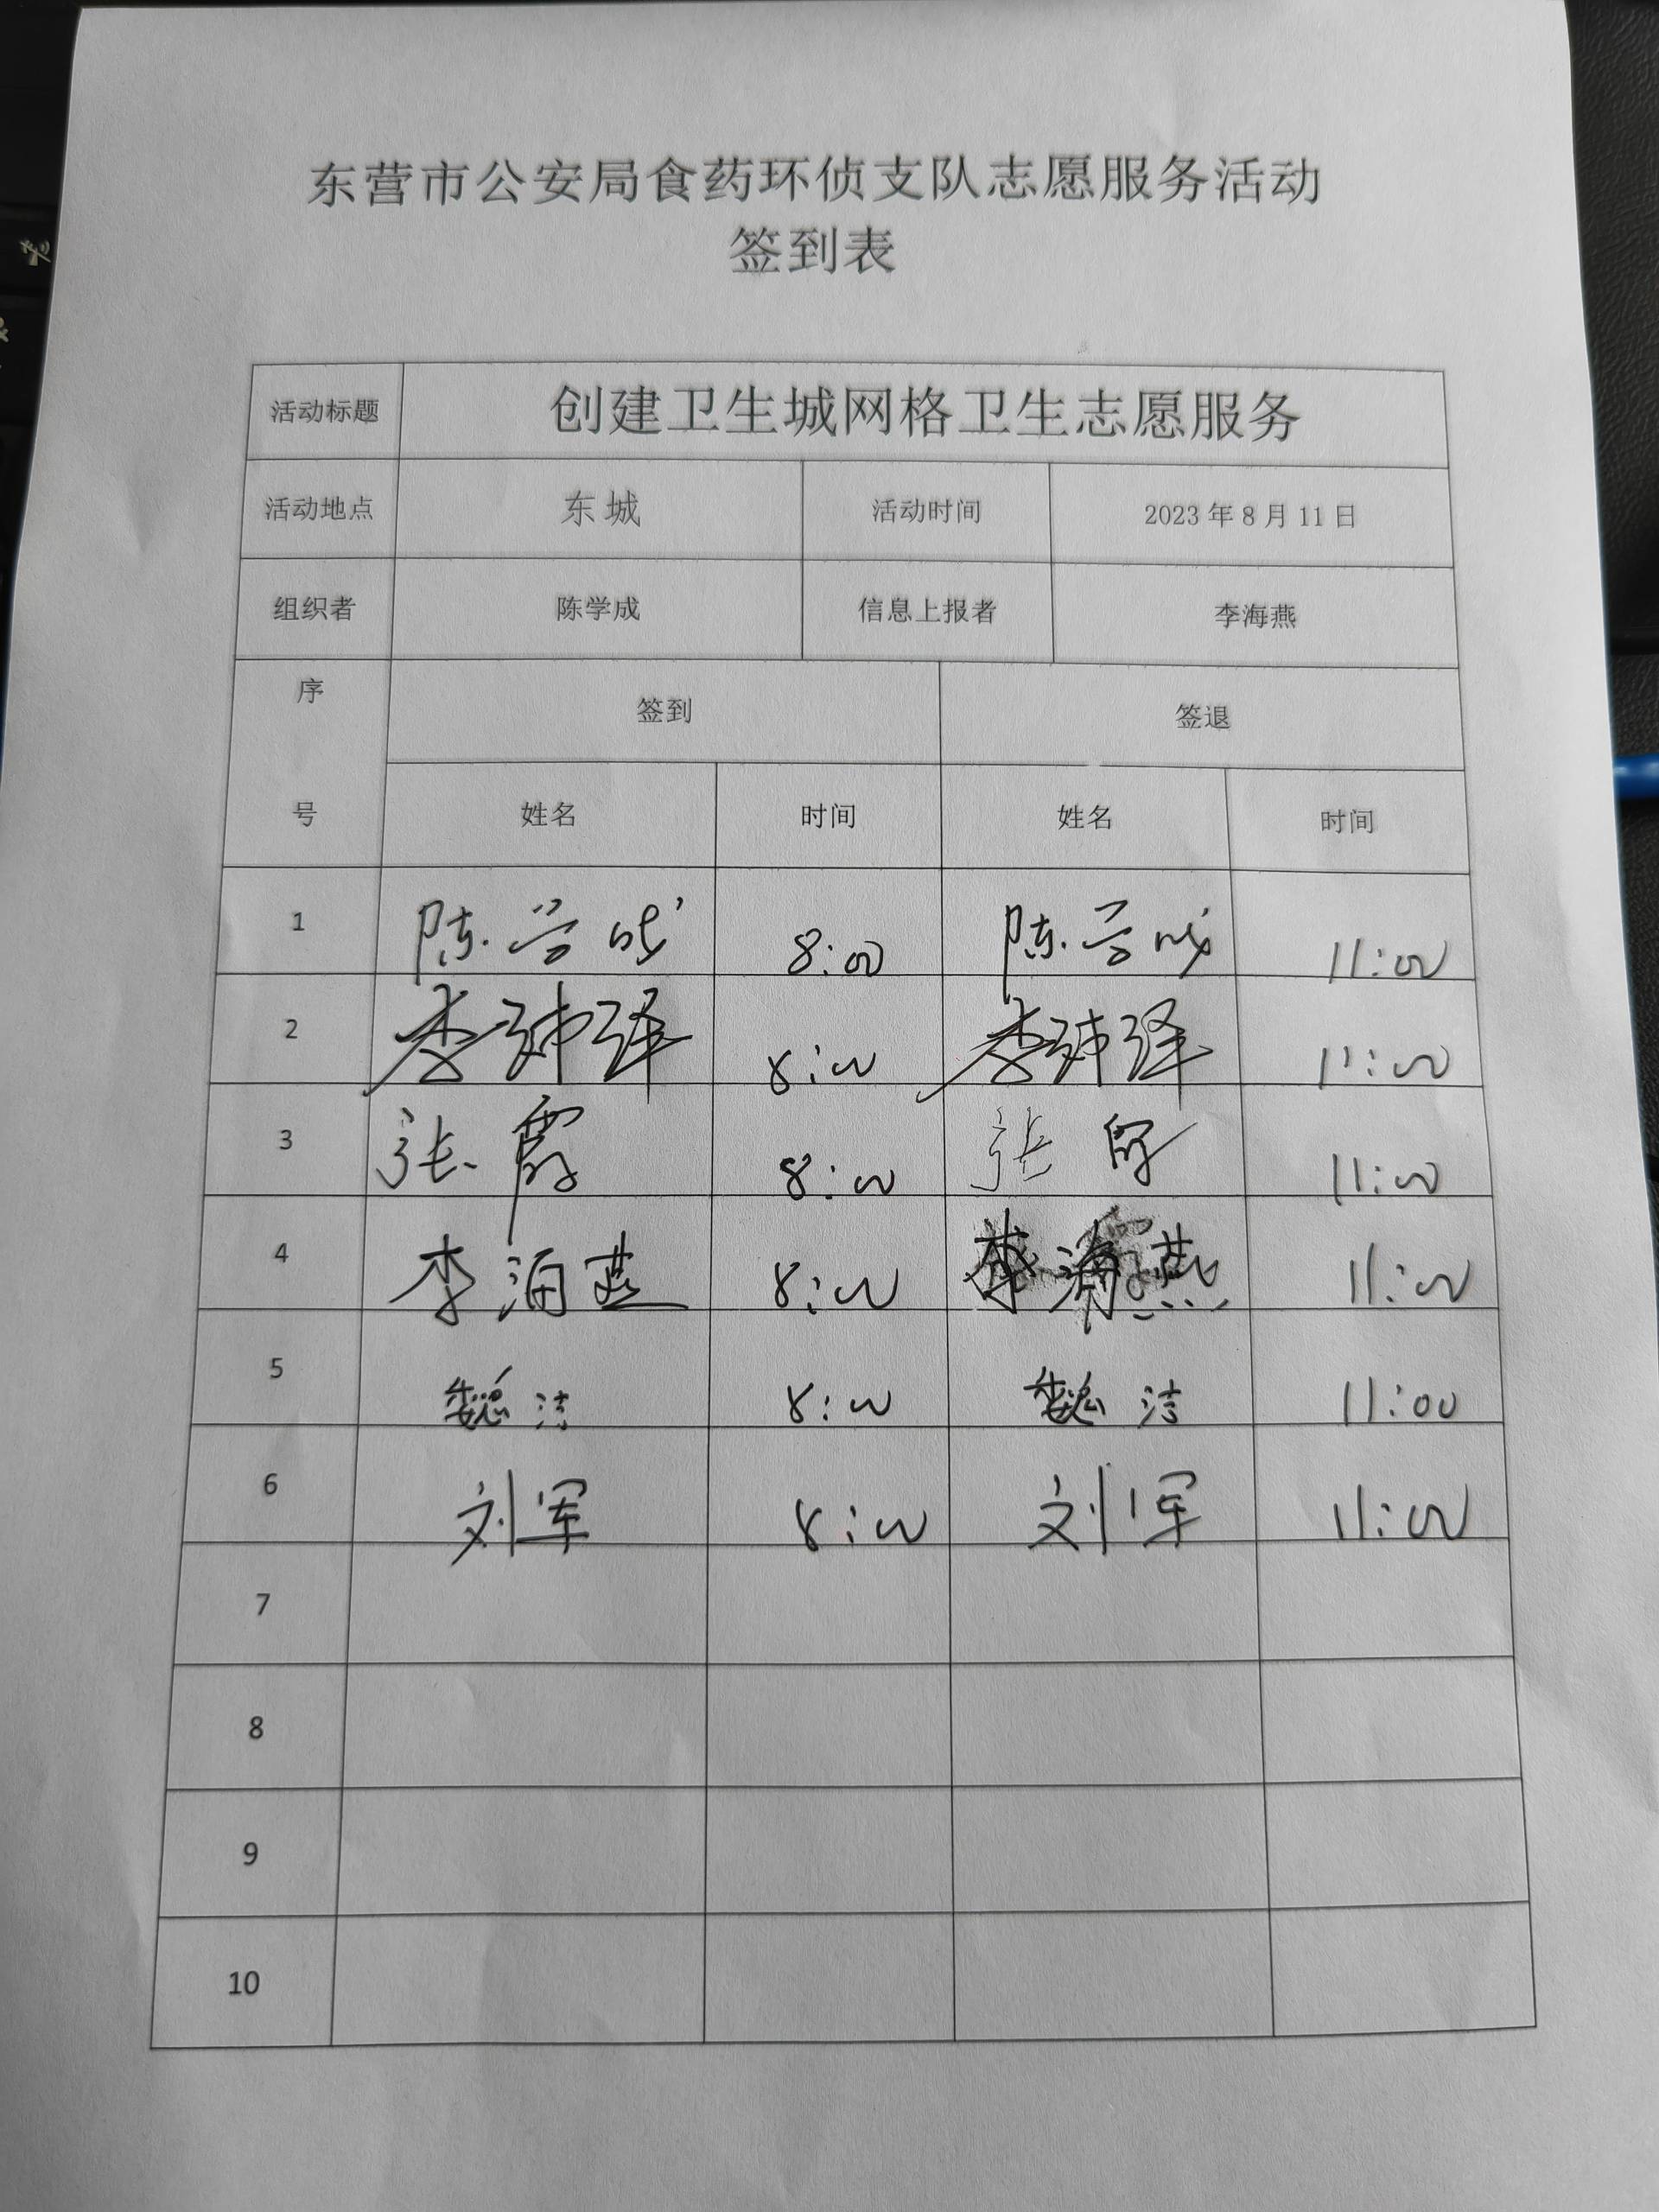 东营市公安局食药环侦支队志愿服务活动
签到表
活动标题 创建卫生城网格卫生志愿服务
活动地点 东城 活动时间 2023年8月11日
组织者 陈学成 信息上报者 李海燕
序号 签到 签退
姓名 时间 姓名 时间
1 陈学成 8:00 陈学成 11:00
2 李 泽 8:00 李 泽 11:00
3 张霞 8:00 张霞 11:00
4 李海燕 8:00 李海燕 11:00
5 魏洁 8:00 魏洁 11:00
6 刘军 8:00 刘军 11:00
7
8
9
10